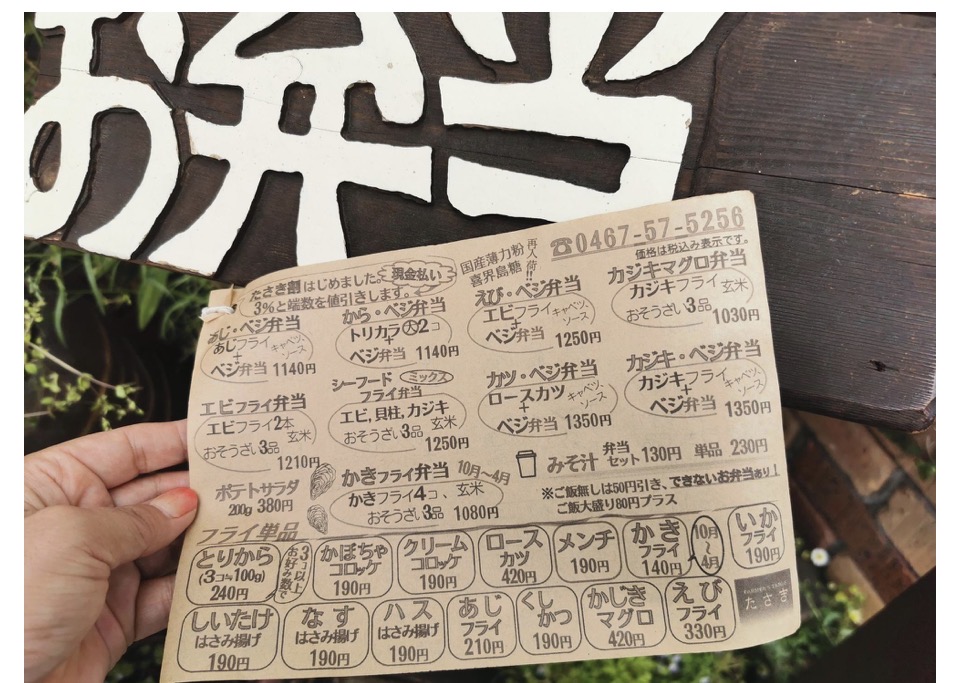 お弁当
☎0467-57-5256
価格は税込み表示です。
再入荷!!
国産薄力粉
喜界島糖
たさき割はじめました。現金払い
3%と端数を値引きします。
あじ・ベジ弁当
あじフライ キャベツ、ソース
+
ベジ弁当 1140円
から・ベジ弁当
トリカラ大2コ
+
ベジ弁当 1140円
えび・ベジ弁当
エビフライ キャベツ、ソース
+
ベジ弁当 1250円
カジキマグロ弁当
カジキフライ 玄米
おそうざい3品
1030円
エビフライ弁当
エビフライ2本
玄米
おそうざい3品
1210円
シーフード ミックス
フライ弁当
エビ,貝柱,カジキ
おそうざい3品 玄米
1250円
カツ・ベジ弁当
ロースカツ キャベツ、ソース
+
ベジ弁当 1350円
カジキ・ベジ弁当
カジキフライ キャベツ、ソース
+
ベジ弁当 1350円
ポテトサラダ
200g 380円
かきフライ弁当 10月〜4月
かきフライ4コ、玄米
おそうざい3品 1080円
みそ汁 弁当セット130円 単品 230円
※ご飯無しは50円引き、できないお弁当あり!
ご飯大盛り80円プラス
フライ単品
とりから
(3コ≒100g)
240円
3コ以上お好み数で
かぼちゃ
コロッケ
190円
クリーム
コロッケ
190円
ロース
カツ
420円
メンチ
190円
かき
フライ
140円
10月〜4月
いか
フライ
190円
しいたけ
はさみ揚げ
190円
なす
はさみ揚げ
190円
ハス
はさみ揚げ
190円
あじ
フライ
210円
くし
かつ
190円
かじき
マグロ
420円
えび
フライ
330円
たさき